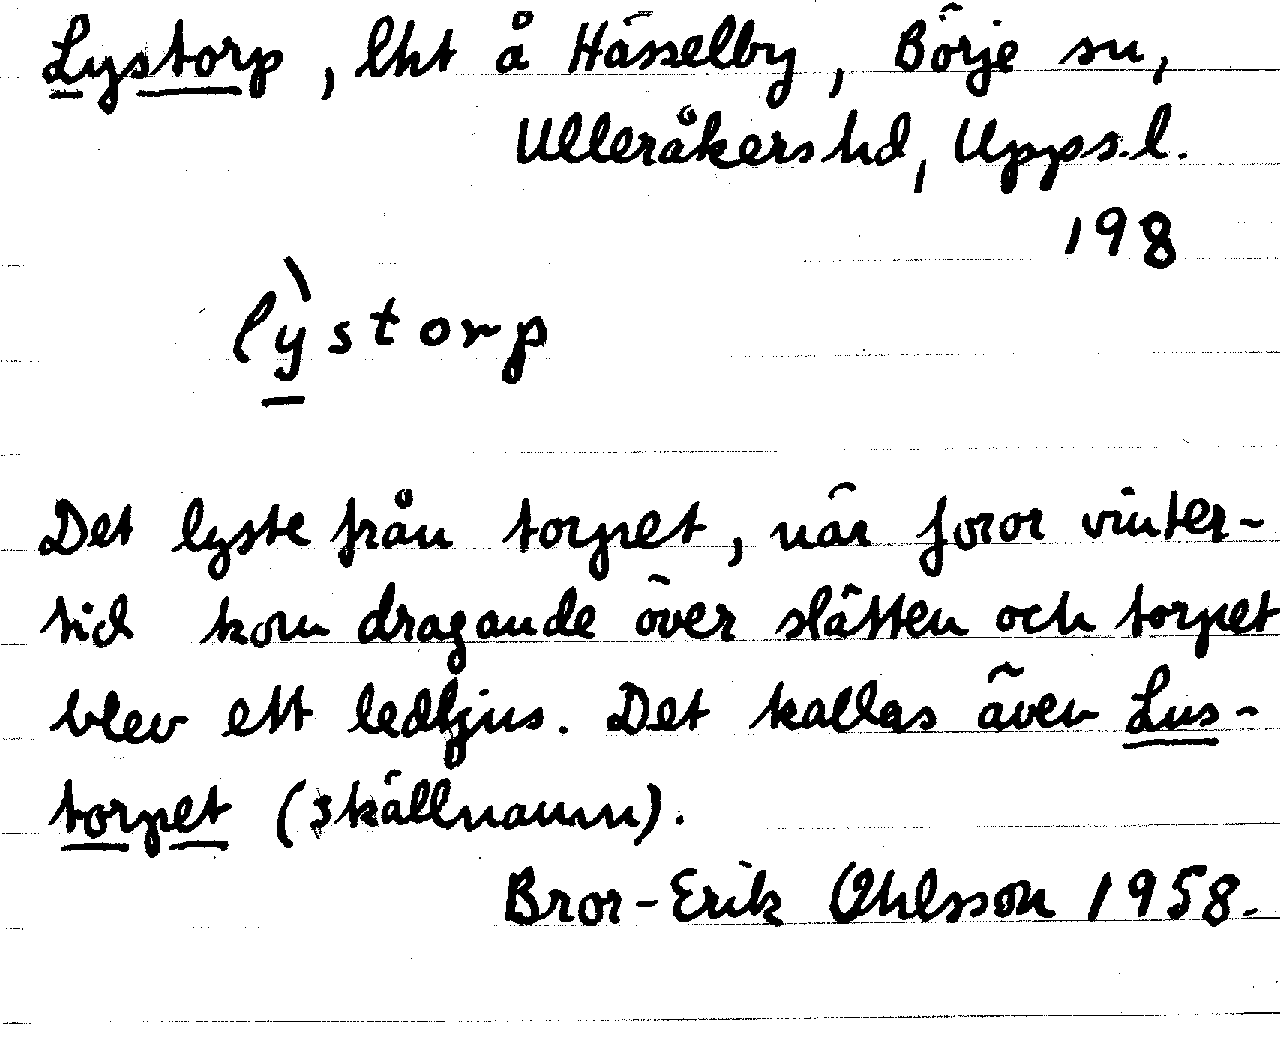 Lystorp, lht å Hässelby, Börje sn,
Ulleråkers hd, Upps.l.
198
lỳstorp
Det lyste från torpet, när foror vinter-
tid kom dragande över slätten och torpet
blev ett ledljus. Det kallas även Lus-
torpet (skällnamn).
Bror-Erik Ohlsson 1958.